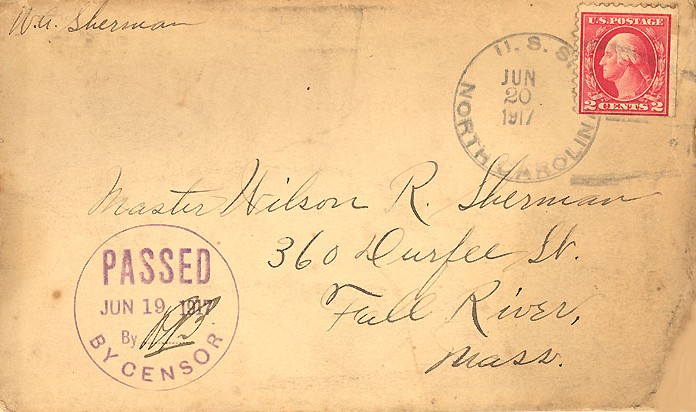 W.A. Sherman
U.S.S.
NORTH CAROLINA
JUN
20
1917
U.S. POSTAGE
2 CENTS 2
Master Wilson R. Sherman
360 Durfee St.
Fall River,
Mass.
PASSED
JUN 19 1917
By
BY CENSOR